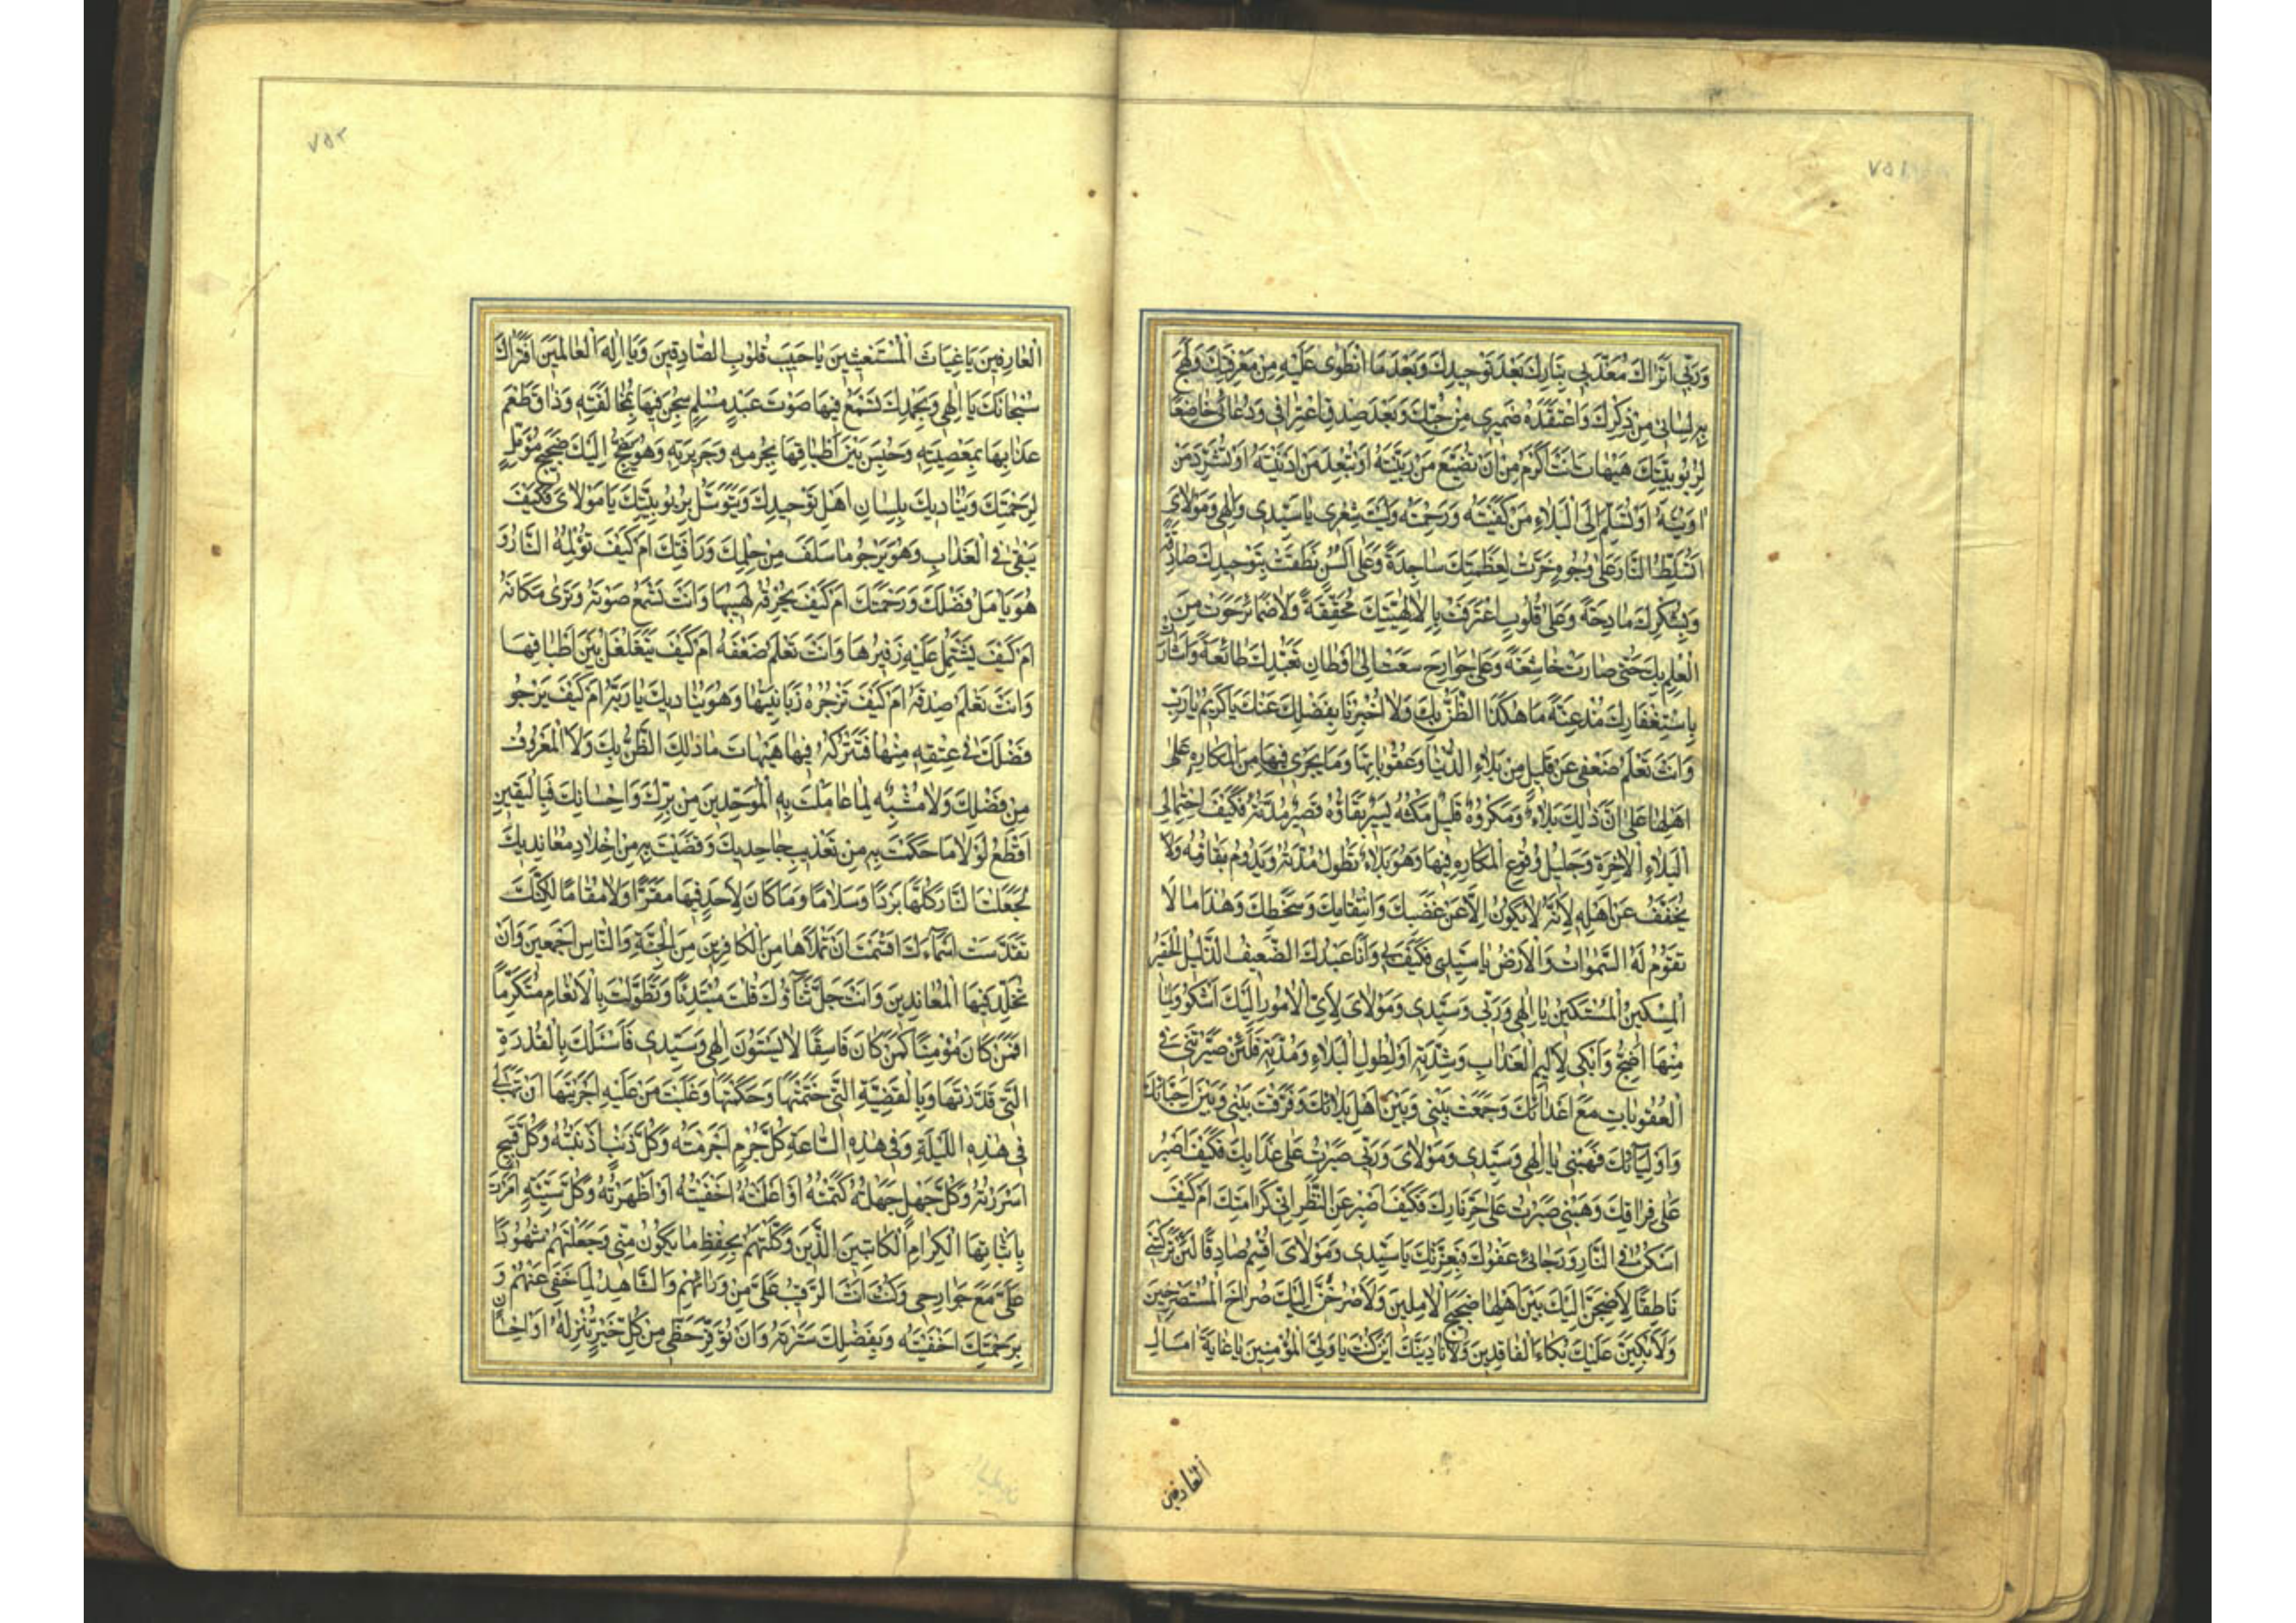 ٧٥١
وَرَبّى اَتُراكَ مُعَذِّبى بِنارِكَ بَعْدَ تَوْحيدِكَ وَبَعْدَ مَا انْطَوى عَلَيْهِ مِنْ مَعْرِفَتِكَ وَلَهِجَ
بِهِ لِسانى مِنْ ذِكْرِكَ وَاعْتَقَدَهُ ضَميرى مِنْ حُبِّكَ وَبَعْدَ صِدْقِ اعْتِرافى وَدُعائى خاضِعًا
لِرُبُوبِيَّتِكَ هَيْهاتَ اَنْتَ اَكْرَمُ مِنْ اَنْ تُضَيِّعَ مَنْ رَبَّيْتَهُ اَوْ تُبْعِدَ مَنْ اَدْنَيْتَهُ اَوْ تُشَرِّدَ مَنْ
اوَيْتَهُ اَوْ تُسَلِّمَ اِلَى الْبَلاءِ مَنْ كَفَيْتَهُ وَرَحِمْتَهُ وَلَيْتَ شِعْرى يا سَيِّدى وَاِلهى وَمَوْلاىَ
اَتُسَلِّطُ النّارَ عَلى وُجُوهٍ خَرَّتْ لِعَظَمَتِكَ ساجِدَةً وَعَلى اَلْسُنٍ نَطَقَتْ بِتَوْحيدِكَ صادِقَةً
وَبِشُكْرِكَ مادِحَةً وَعَلى قُلُوبٍ اعْتَرَفَتْ بِاِلاهِيَّتِكَ مُحَقِّقَةً وَلا ضَمائِرَ حَوَتْ مِنَ
الْعِلْمِ بِكَ حَتّى صارَتْ خاشِعَةً وَعَلى جَوارِحَ سَعَتْ اِلى اَوْطانِ تَعَبُّدِكَ طائِعَةً وَاَشارَتْ
بِاسْتِغْفارِكَ مُذْعِنَةً ما هكَذَا الظَّنُّ بِكَ وَلا اُخْبِرْنا بِفَضْلِكَ عَنْكَ يا كَريمُ يا رَبِّ
وَاَنْتَ تَعْلَمُ ضَعْفى عَنْ قَليلٍ مِنْ بَلاءِ الدُّنْيا وَعُقُوباتِها وَما يَجْرى فيها مِنَ الْمَكارِهِ عَلى
اَهْلِها عَلى اَنَّ ذلِكَ بَلاءٌ وَمَكْرُوهٌ قَليلٌ مَكْثُهُ يَسيرٌ بَقاؤُهُ قَصيرٌ مُدَّتُهُ فَكَيْفَ احْتِمالى
الْبَلاءِ الْاخِرَةِ وَجَليلُ وُقُوعِ الْمَكارِهِ فيها وَهُوَ بَلاءٌ تَطُولُ مُدَّتُهُ وَيَدُومُ بَقاؤُهُ وَلا
يُخَفَّفُ عَنْ اَهْلِهِ لِاَنَّهُ لا يَكُونُ اِلّا عَنْ غَضَبِكَ وَانْتِقامِكَ وَسَخَطِكَ وَهذا ما لا
تَقُومُ لَهُ السَّمواتُ وَالْاَرْضُ يا سَيِّدى فَكَيْفَ بى وَاَنَا عَبْدُكَ الضَّعيفُ الذَّليلُ الْحَقيرُ
الْمِسْكينُ الْمُسْتَكينُ يا اِلهى وَرَبّى وَسَيِّدى وَمَوْلاىَ لِاَىِّ الْاُمُورِ اِلَيْكَ اَشْكُو وَلِما
مِنْها اَضِجُّ وَاَبْكى لِاَليمِ الْعَذابِ وَشِدَّتِهِ اَوْ لِطُولِ الْبَلاءِ وَمُدَّتِهِ فَلَئِنْ صَيَّرْتَنى فى
الْعُقُوباتِ مَعَ اَعْدائِكَ وَجَمَعْتَ بَيْنى وَبَيْنَ اَهْلِ بَلائِكَ وَفَرَّقْتَ بَيْنى وَبَيْنَ اَحِبّائِكَ
وَاَوْلِيائِكَ فَهَبْنى يا اِلهى وَسَيِّدى وَمَوْلاىَ وَرَبّى صَبَرْتُ عَلى عَذابِكَ فَكَيْفَ اَصْبِرُ
عَلى فِراقِكَ وَهَبْنى صَبَرْتُ عَلى حَرِّ نارِكَ فَكَيْفَ اَصْبِرُ عَنِ النَّظَرِ اِلى كَرامَتِكَ اَمْ كَيْفَ
اَسْكُنُ فِى النّارِ وَرَجائى عَفْوُكَ فَبِعِزَّتِكَ يا سَيِّدى وَمَوْلاىَ اُقْسِمُ صادِقًا لَئِنْ تَرَكْتَنى
ناطِقًا لَاَضِجَّنَّ اِلَيْكَ بَيْنَ اَهْلِها ضَجيجَ الْامِلينَ وَلَاَصْرُخَنَّ اِلَيْكَ صُراخَ الْمُسْتَصْرِخينَ
وَلَاَبْكِيَنَّ عَلَيْكَ بُكاءَ الْفاقِدينَ وَلَاُنادِيَنَّكَ اَيْنَ كُنْتَ يا وَلِىَّ الْمُؤْمِنينَ يا غايَةَ امالِ
العارفين
٧٥٢
الْعارِفينَ يا غِياثَ الْمُسْتَغيثينَ يا حَبيبَ قُلُوبِ الصّادِقينَ وَيا اِلهَ الْعالَمينَ اَفَتُراكَ
سُبْحانَكَ يا اِلهى وَبِحَمْدِكَ تَسْمَعُ فيها صَوْتَ عَبْدٍ مُسْلِمٍ سُجِنَ فيها بِمُخالَفَتِهِ وَذاقَ طَعْمَ
عَذابِها بِمَعْصِيَتِهِ وَحُبِسَ بَيْنَ اَطْباقِها بِجُرْمِهِ وَجَريرَتِهِ وَهُوَ يَضِجُّ اِلَيْكَ ضَجيجَ مُؤَمِّلٍ
لِرَحْمَتِكَ وَيُناديكَ بِلِسانِ اَهْلِ تَوْحيدِكَ وَيَتَوَسَّلُ بِرُبُوبِيَّتِكَ يا مَوْلاىَ فَكَيْفَ
يَبْقى فِى الْعَذابِ وَهُوَ يَرْجُو ما سَلَفَ مِنْ حِلْمِكَ وَرَأْفَتِكَ اَمْ كَيْفَ تُؤْلِمُهُ النّارُ وَ
هُوَ يَأْمَلُ فَضْلَكَ وَرَحْمَتَكَ اَمْ كَيْفَ يُحْرِقُهُ لَهيبُها وَاَنْتَ تَسْمَعُ صَوْتَهُ وَتَرى مَكانَهُ
اَمْ كَيْفَ يَشْتَمِلُ عَلَيْهِ زَفيرُها وَاَنْتَ تَعْلَمُ ضَعْفَهُ اَمْ كَيْفَ يَتَغَلْغَلُ بَيْنَ اَطْباقِها
وَاَنْتَ تَعْلَمُ صِدْقَهُ اَمْ كَيْفَ تَزْجُرُهُ زَبانِيَتُها وَهُوَ يُناديكَ يا رَبَّهُ اَمْ كَيْفَ يَرْجُو
فَضْلَكَ فى عِتْقِهِ مِنْها فَتَتْرُكُهُ فيها هَيْهاتَ ما ذلِكَ الظَّنُّ بِكَ وَلَا الْمَعْرُوفُ
مِنْ فَضْلِكَ وَلا مُشْبِهٌ لِما عامَلْتَ بِهِ الْمُوَحِّدينَ مِنْ بِرِّكَ وَاِحْسانِكَ فَبِالْيَقينِ
اَقْطَعُ لَوْلا ما حَكَمْتَ بِهِ مِنْ تَعْذيبِ جاحِديكَ وَقَضَيْتَ بِهِ مِنْ اِخْلادِ مُعانِديكَ
لَجَعَلْتَ النّارَ كُلَّها بَرْدًا وَسَلامًا وَما كانَ لِاَحَدٍ فيها مَقَرًّا وَلا مُقامًا لكِنَّكَ
تَقَدَّسَتْ اَسْماءُكَ اَقْسَمْتَ اَنْ تَمْلَأَها مِنَ الْكافِرينَ مِنَ الْجِنَّةِ وَالنّاسِ اَجْمَعينَ وَاَنْ
تُخَلِّدَ فيهَا الْمُعانِدينَ وَاَنْتَ جَلَّ ثَناؤُكَ قُلْتَ مُبْتَدِئًا وَتَطَوَّلْتَ بِالْاِنْعامِ مُتَكَرِّمًا
اَفَمَنْ كانَ مُؤْمِنًا كَمَنْ كانَ فاسِقًا لا يَسْتَوُونَ اِلهى وَسَيِّدى فَاَسْئَلُكَ بِالْقُدْرَةِ
الَّتى قَدَّرْتَها وَبِالْقَضِيَّةِ الَّتى حَتَمْتَها وَحَكَمْتَها وَغَلَبْتَ مَنْ عَلَيْهِ اَجْرَيْتَها اَنْ تَهَبَ لى
فى هذِهِ اللَّيْلَةِ وَفى هذِهِ السّاعَةِ كُلَّ جُرْمٍ اَجْرَمْتُهُ وَكُلَّ ذَنْبٍ اَذْنَبْتُهُ وَكُلَّ قَبيحٍ
اَسْرَرْتُهُ وَكُلَّ جَهْلٍ جَهِلْتُهُ كَتَمْتُهُ اَوْ اَعْلَنْتُهُ اَخْفَيْتُهُ اَوْ اَظْهَرْتُهُ وَكُلَّ سَيِّئَةٍ اَمَرْتَ
بِاِثْباتِهَا الْكِرامَ الْكاتِبينَ الَّذينَ وَكَّلْتَهُمْ بِحِفْظِ ما يَكُونُ مِنّى وَجَعَلْتَهُمْ شُهُودًا
عَلَىَّ مَعَ جَوارِحى وَكُنْتَ اَنْتَ الرَّقيبَ عَلَىَّ مِنْ وَرائِهِمْ وَالشّاهِدَ لِما خَفِىَ عَنْهُمْ وَ
بِرَحْمَتِكَ اَخْفَيْتَهُ وَبِفَضْلِكَ سَتَرْتَهُ وَاَنْ تُوَفِّرَ حَظّى مِنْ كُلِّ خَيْرٍ تُنْزِلُهُ اَوْ اِحْسانٍ